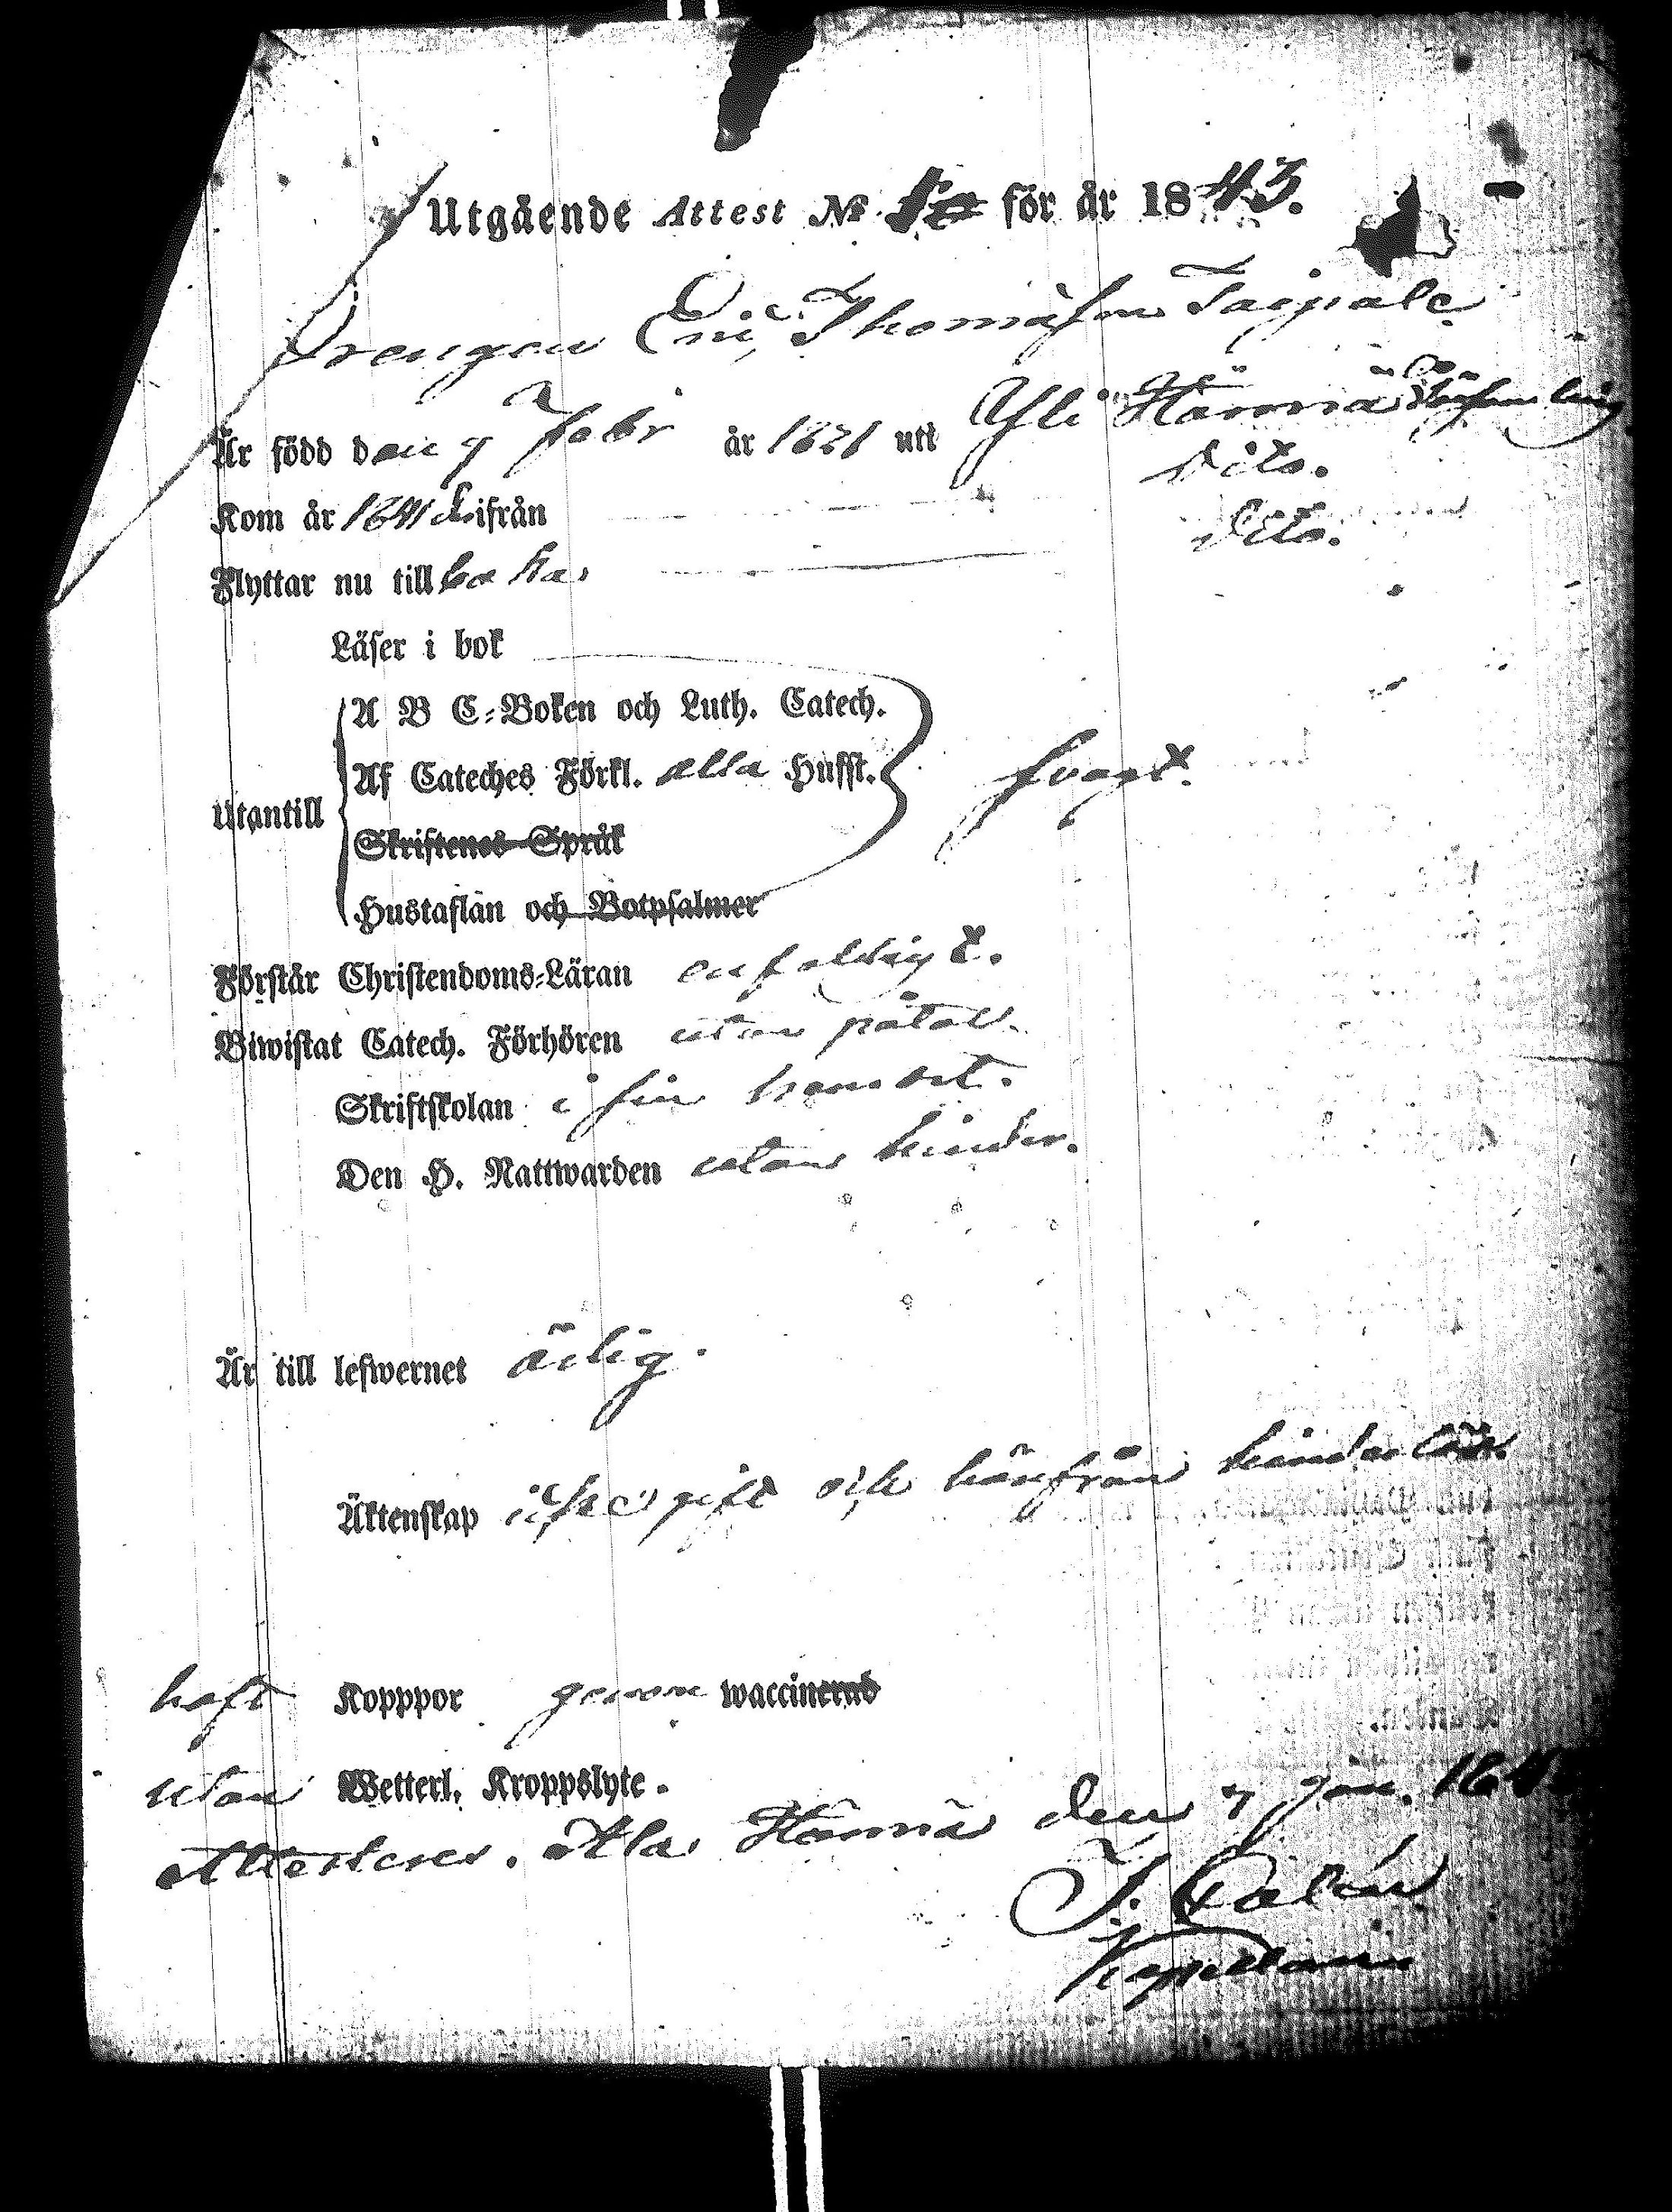 Utgående Attest № för år 1843.
Drengen Eric Thomasson Taipale
Är född den 7 Febr år 1821 utt Yli Härmä
Kom år 1841 ifrån Dito.
Flyttar nu till baka. Dito.
Läser i bok
A B C-Boken och Luth. Catech.
Af Cateches Förkl. alla Husst. svagt.
Utantill
Skriftenes Språk
Hustaflan och Botpsalmer
Förstår Christendoms-Läran enfaldigt.
Biwistat Catech. Förhören utan påtal.
Skriftskolan i sin hemort.
Den H. Nattwarden utan hinder.
Är till lefwernet ärlig.
Äktenskap icke gift och härifrån hinderlös.
haft Kopppor genom waccinerad
utan Wetterl. Kroppslyte.
Attesteres. Ala Härmä den 7 Jan.
Kapellan